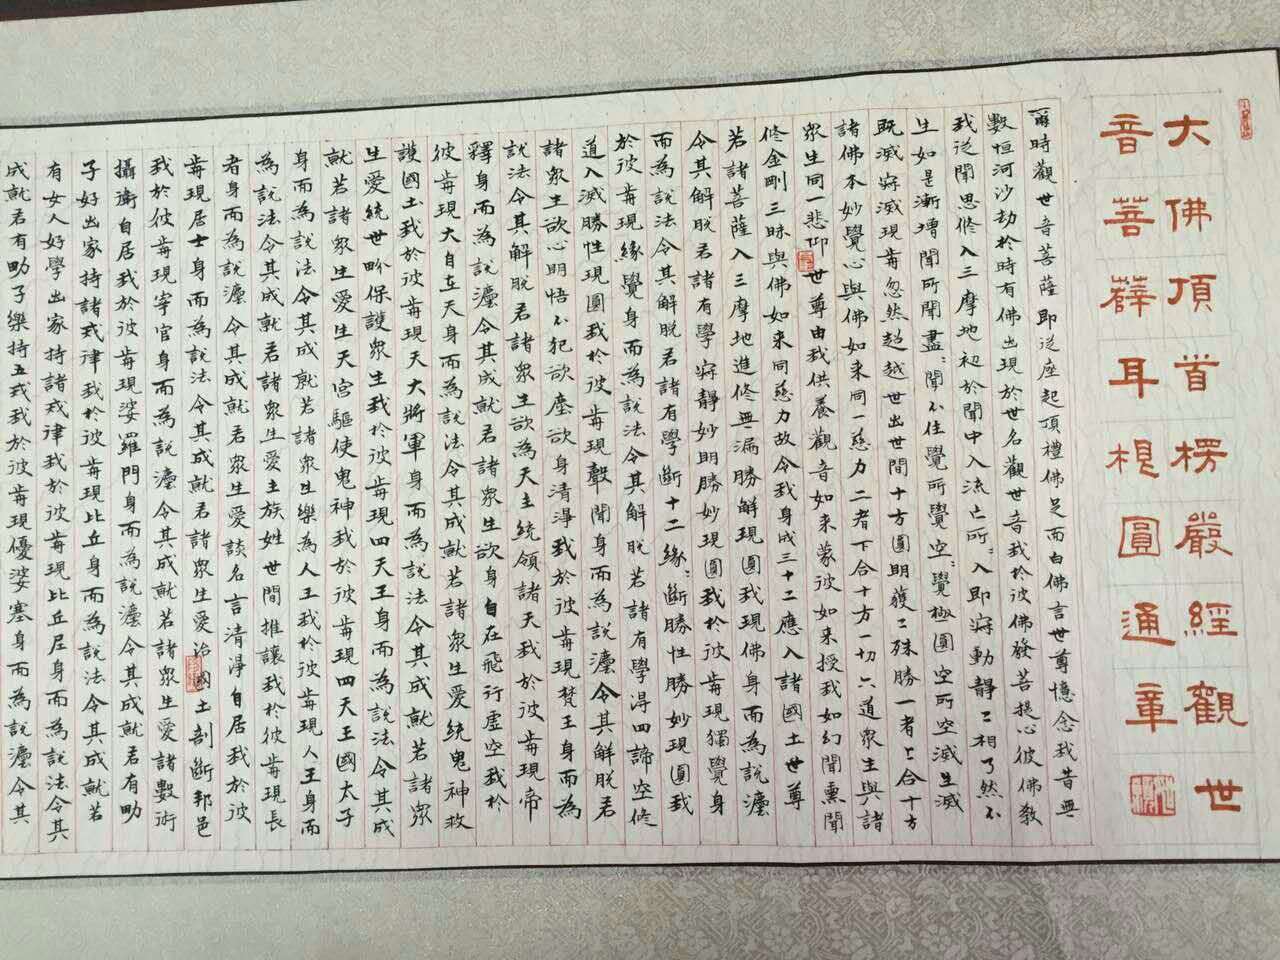 大佛頂首楞嚴經觀世
音菩薩耳根圓通章
爾時觀世音菩薩即從座起頂禮佛足而白佛言世尊憶念我昔無
數恒河沙劫於時有佛出現於世名觀世音我於彼佛發菩提心彼佛教
我從聞思修入三摩地初於聞中入流亡所:入即寂動靜二相了然不
生如是漸增聞所聞盡:聞不住覺所覺空:覺極圓空所空滅生滅
既滅寂滅現前忽然超越世出世間十方圓明獲二殊勝一者上合十方
諸佛本妙覺心與佛如来同一慈力二者下合十方一切六道衆生與諸
眾生同一悲仰世尊由我供養觀音如来蒙彼如来授我如幻聞熏聞
修金剛三昧與佛如来同慈力故令我身成三十二應入諸國土世尊
若諸菩薩入三摩地進修無漏勝解現圓我現佛身而為說灋
令其解脫若諸有學寂靜妙明勝妙現圓我於彼前現獨覺身
而為說法令其解脫若諸有學斷十二緣:斷勝性勝妙現圓我
於彼前現緣覺身而為說法令其解脫若諸有學得四諦空修
道入滅勝性現圓我於彼前現聲聞身而為說灋令其解脫若
諸眾生欲心明悟不犯欲塵欲身清淨我於彼前現梵王身而為
說法令其解脫若諸眾生欲為天主統領諸天我於彼前現帝
釋身而為說灋令其成就若諸眾生欲身自在飛行虛空我於
彼前現大自在天身而為說法令其成就若諸眾生愛統鬼神救
護國土我於彼前現天大將軍身而為說法令其成就若諸眾
生愛統世畍保護眾生我於彼前現四天王身而為說法令其成
就若諸眾生愛生天宮驅使鬼神我於彼前現四天王國太子
身而為說法令其成就若諸眾生樂為人王我於彼前現人王身而
為說法令其成就若諸眾生愛主族姓世間推讓我於彼前現長
者身而為說灋令其成就若眾生愛談名言清淨自居我於彼
前現居士身而為說法令其成就若諸眾生愛治國土剖斷邦邑
我於彼前現宰官身而為說灋令其成就若諸眾生愛諸數術
攝衛自居我於彼前現婆羅門身而為說灋令其成就若有男
子好出家持諸戒律我於彼前現比丘身而為說法令其成就若
有女人好學出家持諸戒律我於彼前現比丘尼身而為說法令其
成就若有男子樂持五戒我於彼前現優婆塞身而為說灋令其